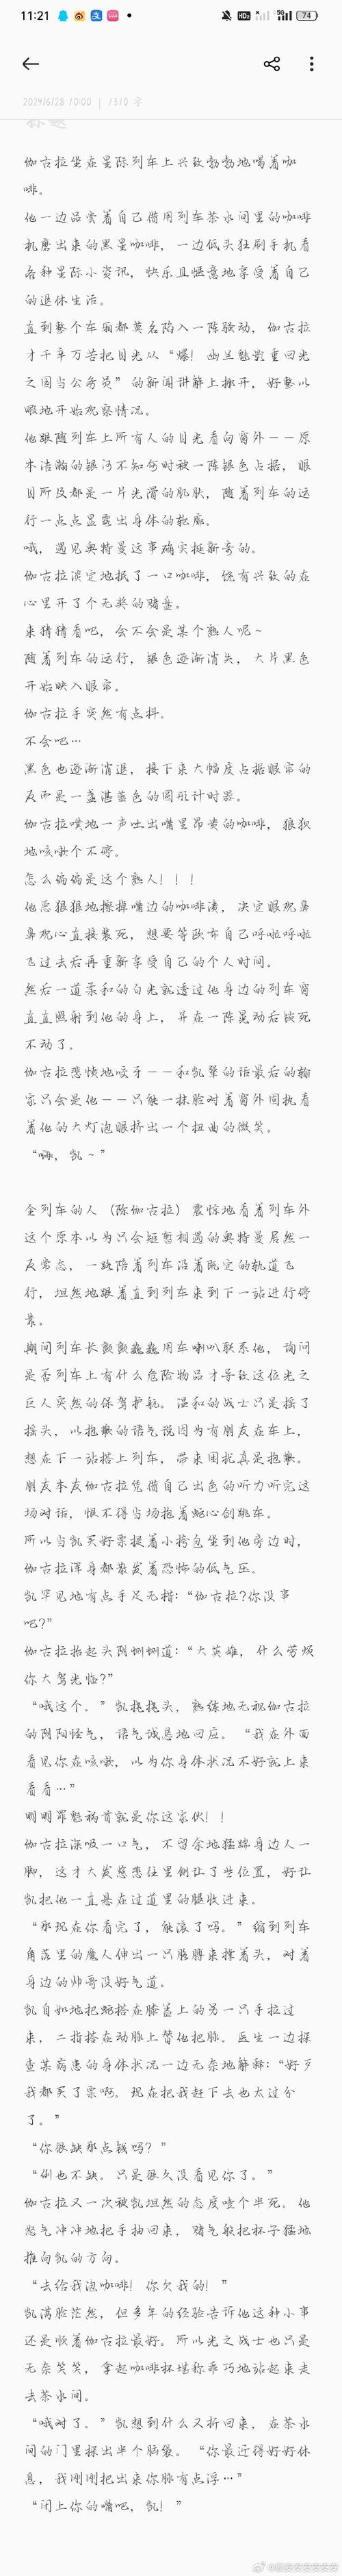 11:21
HD2
5G
74
2024/6/28 10:00 | 1310 字
标题
伽古拉坐在星际列车上兴致勃勃地喝着咖
啡。
他一边品尝着自己借用列车茶水间里的咖啡
机磨出来的黑星咖啡，一边低头狂刷手机看
各种星际小资讯，快乐且惬意地享受着自己
的退休生活。
直到整个车厢都莫名陷入一阵骚动，伽古拉
才千辛万苦把目光从“爆！幽兰魅影重回光
之国当公务员”的新闻讲解上挪开，好整以
暇地开始观察情况。
他跟随列车上所有人的目光看向窗外——原
本浩瀚的银河不知何时被一阵银色占据，眼
目所及都是一片光滑的肌肤，随着列车的运
行一点点显露出身体的轮廓。
哦，遇见奥特曼这事确实挺新奇的。
伽古拉淡定地抿了一口咖啡，饶有兴致的在
心里开了个无奖的赌盘。
来猜猜看吧，会不会是某个熟人呢～
随着列车的运行，银色逐渐消失，大片黑色
开始映入眼帘。
伽古拉手突然有点抖。
不会吧…
黑色也逐渐消退，接下来大幅度占据眼帘的
反而是一盏湛蓝色的圆形计时器。
伽古拉噗地一声吐出嘴里昂贵的咖啡，狼狈
地咳嗽个不停。
怎么偏偏是这个熟人！！！
他恶狠狠地擦掉嘴边的咖啡渍，决定眼观鼻
鼻观心直接装死，想要等欧布自己呼啦呼啦
飞过去后再重新享受自己的个人时间。
然后一道柔和的白光就透过他身边的列车窗
直直照射到他的身上，并在一阵晃动后锁死
不动了。
伽古拉悲愤地咬牙——和凯犟的话最后的输
家只会是他——只能一抹脸对着窗外同执看
着他的大灯泡眼挤出一个扭曲的微笑。
“嗨，凯～”
全列车的人（除伽古拉）震惊地看着列车外
这个原本以为只会短暂相遇的奥特曼居然一
反常态，一路陪着列车沿着既定的轨道飞
行，坦然地跟着直到列车来到下一站进行停
靠。
期间列车长颤颤巍巍用车喇叭联系他，询问
是否列车上有什么危险物品才导致这位光之
巨人突然的保驾护航。温和的战士只是摇了
摇头，以抱歉的语气说因为有朋友在车上，
想在下一站搭上列车，带来困扰真是抱歉。
朋友本友伽古拉凭借自己出色的听力听完这
场对话，恨不得当场抱着蛇心剑跳车。
所以当凯买好票提着小挎包坐到他旁边时，
伽古拉浑身都散发着恐怖的低气压。
凯罕见地有点手足无措：“伽古拉？你没事
吧？”
伽古拉抬起头阴恻恻道：“大英雄，什么劳烦
你大驾光临？”
“哦这个。”凯挠挠头，熟练地无视伽古拉
的阴阳怪气，语气诚恳地回应。“我在外面
看见你在咳嗽，以为你身体状况不好就上来
看看…”
明明罪魁祸首就是你这家伙！！
伽古拉深吸一口气，不留余地猛踹身边人一
脚，这才大发慈悲往里侧让了些位置，好让
凯把他一直悬在过道里的腿收进来。
“那现在你看完了，能滚了吗。”缩到列车
角落里的魔人伸出一只胳膊来撑着头，对着
身边的帅哥没好气道。
凯自如地把他搭在膝盖上的另一只手拉过
来，二指搭在动脉上替他把脉。医生一边探
查某病患的身体状况一边无奈地解释：“好歹
我都买了票啊。现在把我赶下去也太过分
了。”
“你很缺那点钱吗？”
“倒也不缺。只是很久没看见你了。”
伽古拉又一次被凯坦然的态度噎个半死。他
怒气冲冲地把手抽回来，赌气般把杯子猛地
推向凯的方向。
“去给我泡咖啡！你欠我的！”
凯满脸茫然，但多年的经验告诉他这种小事
还是顺着伽古拉最好。所以光之战士也只是
无奈笑笑，拿起咖啡杯堪称乖巧地站起来走
去茶水间。
“哦对了。”凯想到什么又折回来，在茶水
间的门里探出半个脑袋。“你最近得好好休
息，我刚刚把出来你脉有点浮…”
“闭上你的嘴吧，凯！”